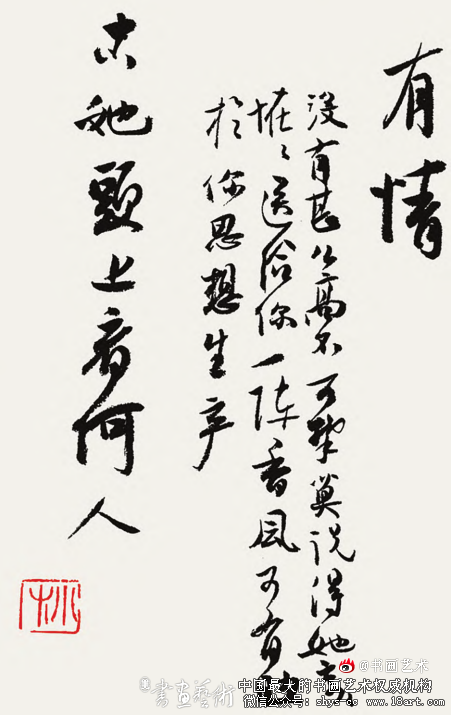 有情
没有甚么高不可攀莫说得她
送给你一阵香风可有
於你思想生产
她 上 何人
@书画艺术
書畫藝術
中国最大的书画艺术权威机构
微信公众号: shys-cc www.18art.com